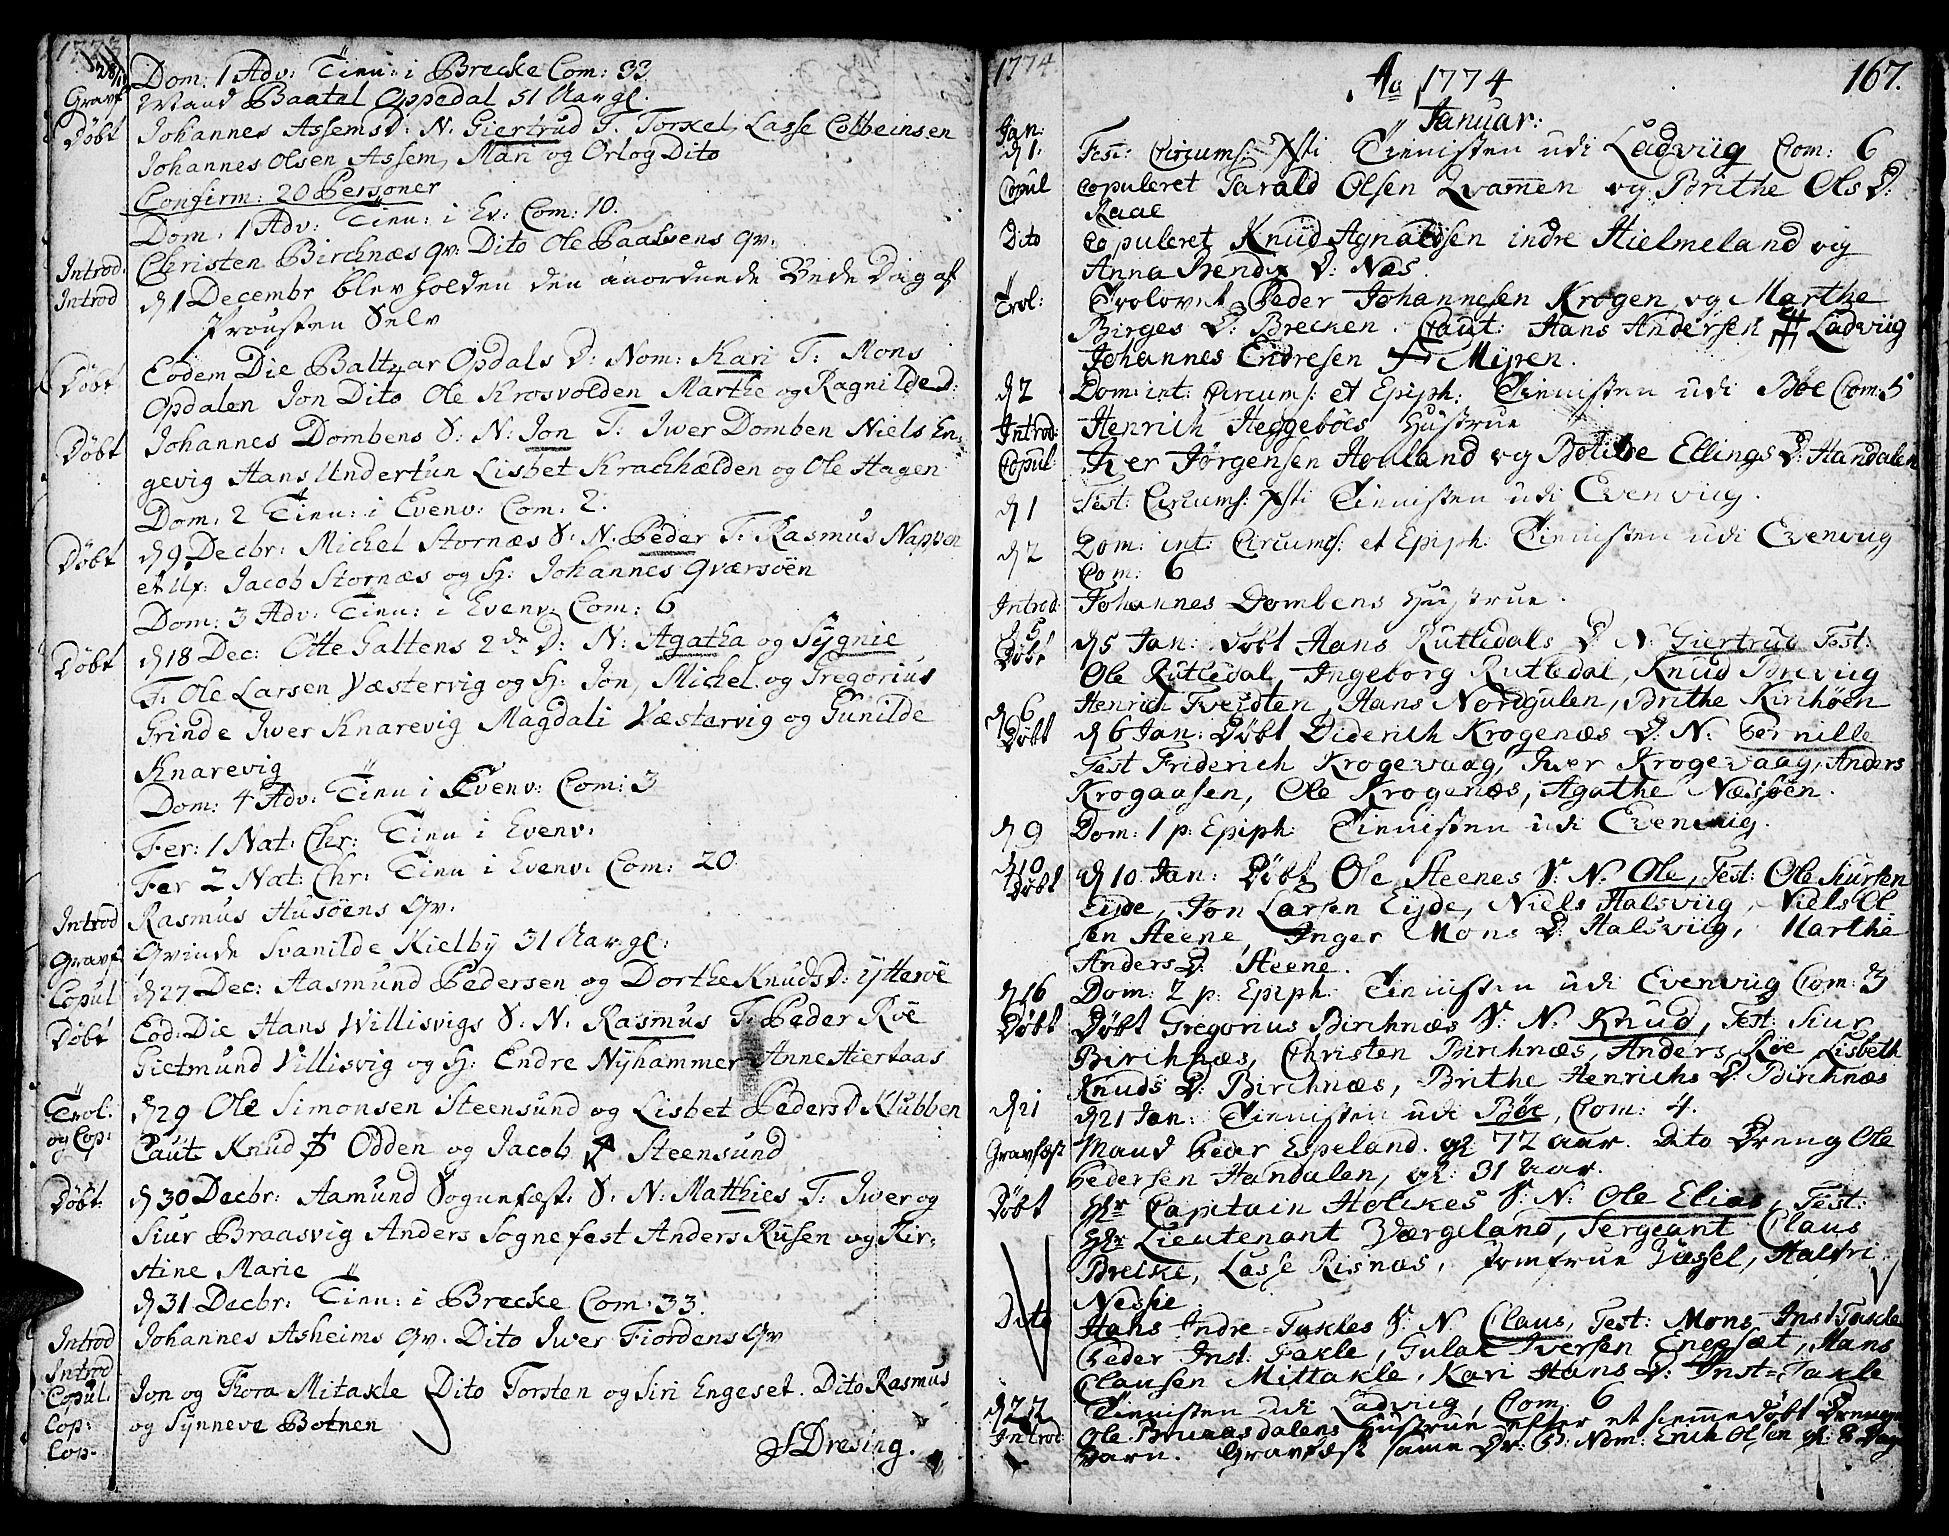 1773
28/11
Dom: 1 Adv: Tien: i Brecke Com: 33
Gravf. Mand Baatal Oppedal 51 Aar gl.
Døbt Johannes Assems D: N. Giertrud T. Torkel, Lasse Colbeinsen
Johannes Olsen Assem, Mari og Orlog Dito
Confirm: 20 Personer
Dom: 1 Adv: Tien: i Ev: Com: 10.
Introd. Christen Birchnæs qv: Dito Ole Paalsens qv.
Introd d 1 Decembr blev holden den anordnede Bede Dag af
Prousten Selv
Døbt Eodem Die Baltzar Opdals D: Nom: Kari T: Mons
Opdalen Jon Dito Ole Krosvolden Marthe og Ragnilde D:
Døbt Johannes Dombens S: N: Jon T: Iwer Domben Niels En-
gevig Hans Undertun Lisbet Krackhælden og Ole Hagen
Dom: 2 Tien: i Evenv: Com: 2.
Døbt d 9 Decbr: Michel Stornæs S: N. Peder T: Rasmus Nappen
et Ux: Jacob Stornæs og H: Johannes Qværsöen
Dom: 3 Adv: Tien: i Evenv: Com: 6
Døbt d 18 Dec: Otte Galtens 2de D: N: Agatha og Sygnie
T: Ole Larsen Væstervig og H: Jon, Michel og Gregorius
Grinde Iwer Knarevig Magdali Væstervig og Gunilde
Knarevig
Dom: 4 Adv: Tien i Evenv: Com: 3
Fer: 1 Nat: Chr: Tien i Evenv.
Fer 2 Nat: Chr: Tien i Evenv: Com: 20
Introd Rasmus Husöens qv.
Gravf Qvinde Svanilde Kielby 31 Aar gl:
Copul d 27 Dec: Aasmund Pedersen og Dorthe Knuds D: Ytteröe
Døbt Eod: Die Hans Willisvigs S: N. Rasmus T: Peder Röe
Gietmund Villisvig og H: Endre Nyhammer Anne Hiertaas
Trol. d 29 Ole Simonsen Steensund og Lisbet Peders D Klubben
og Cop: Caut Knud Odden og Jacob Steensund
Døbt d 30 Decbr: Aamund Sognefæst. S: N: Matthies T: Iwer og
Siur Braasvig Anders Sognefest Anders Rusen og Kir-
stine Marie
d 31 Decbr: Tien: i Brecke Com: 33.
Introd Johannes Asheims qv. Dito Iwer Fiordens qv
Introd
Copul. Jon og Thora Mitakle Dito Torsten og Siri Engeset. Dito Rasmus
Cop: og Synneve Botnen
Cop.
S Dresing.
1774
Ao 1774
167.
Januar:
Jan:
d 1. Fest: Circums: Xsti Tienisten udi Ladviig Com: 6
Copul copuleret Tarald Olsen Qvamen og Brithe Ols D:
Raae
Dito copuleret Knud Agnaldsen indre Hielmeland og
Anna Bendix D: Næs.
Trol: Trolovet Peder Johannesen Krogen og Marthe
Birges D: Brecken. Caut: Hans Andersen Ladviig
Johannes Endresen Myren.
d 2 Dom: int: Circums: et Epiph: Tienisten udi Böe Com: 5
Introd: Henrich Heggeböes Hustrue
Copul: Iver Jørgensen Houland og Botilde Ellings D: Handalen
d 1 Fest: Circums: Xsti Tienisten udi Evenviig.
d 2 Dom: int: Circums: et Epiph: Tienisten udi Evenvig
Com: 6
Introd Johannes Dombens Hustrue.
d 5 Døbt d 5 Jan: Døbt Hans Rutledals D N: Giertrud Test:
Ole Rutledal, Ingeborg Rutledal, Knud Breviig
Henrich Tveidten, Hans Nordgulen, Brithe Kirchöen
d 6 Døbt d 6 Jan: Døbt Diderich Krogenæs D: N: Pernille
Test Friderich Krogevaag, Iwer Krogevaag, Anders
Krogaasen, Ole Krogenæs, Agathe Næssöen.
d 9 Dom: 1 p: Epiph: Tienisten udi Evenviig.
d 10 Døbt d 10 Jan: Døbt Ole Steenes S: N. Ole, Test: Ole Siursen
Eyde, Jon Larsen Eyde, Niels Halsviig, Niels Ol
sen Steene, Inger Mons D: Halsviig, Marthe
Anders D: Steene.
d 16 Dom: 2 p: Epiph: Tienisten udi Evenviig Com: 3
Døbt Døbt Gregorius Birchnæs S: N: Knud, Test: Siur
Birchnæs, Christen Birchnæs, Anders Röe Lisbeth
Knuds D: Birchnæs, Brithe Henrichs D: Birchnæs
d 21 d 21 Jan: Tienisten udi Böe, Com: 4.
Gravfæst Mand Peder Espeland. gl 72 aar. Dito Dreng Ole
Pedersen Handalen, gl: 31 Aar.
Døbt Hr Capitain Holckes S: N: Ole Elias, Test:
Hr Lieutenant Værgeland, Sergeant Claus
Breike, Lasse Risnæs, Jomfrue Vassel, Halfri
Neshe
Dito Hans Indre-Takles S: N. Claus, Test: Mons Inst Takle
Peder Inst: Takle, Gulak Iversen Enegsæt, Hans
Clausen Mittakle, Kari Hans D: Inst-Takle
d 22 Tienisten udi Ladviig, Com: 6
Introd Ole Brunsdalens Hustrue efter et hiemedøbt Drenge
Barn. Gravfæst same Dr: B: Nom: Erich Olsen gl: 8 Dage